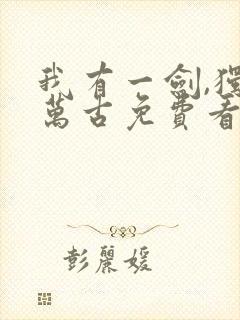 我有一劍,獨
萬古免費看
彭麗媛